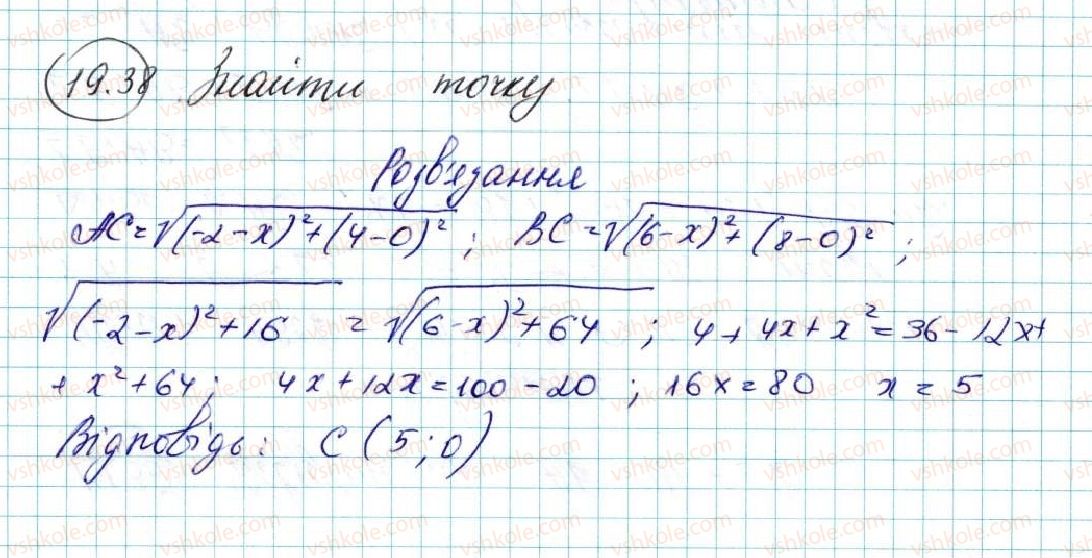 19.38 Знайти точку
Розв'язання
AC = √(-2-x)²+(4-0)² ; BC = √(6-x)²+(8-0)² ;
√(-2-x)²+16 = √(6-x)²+64 ; 4+4x+x²=36-12x+
+x²+64; 4x+12x=100-20 ; 16x=80 x=5
Відповідь: C (5;0)